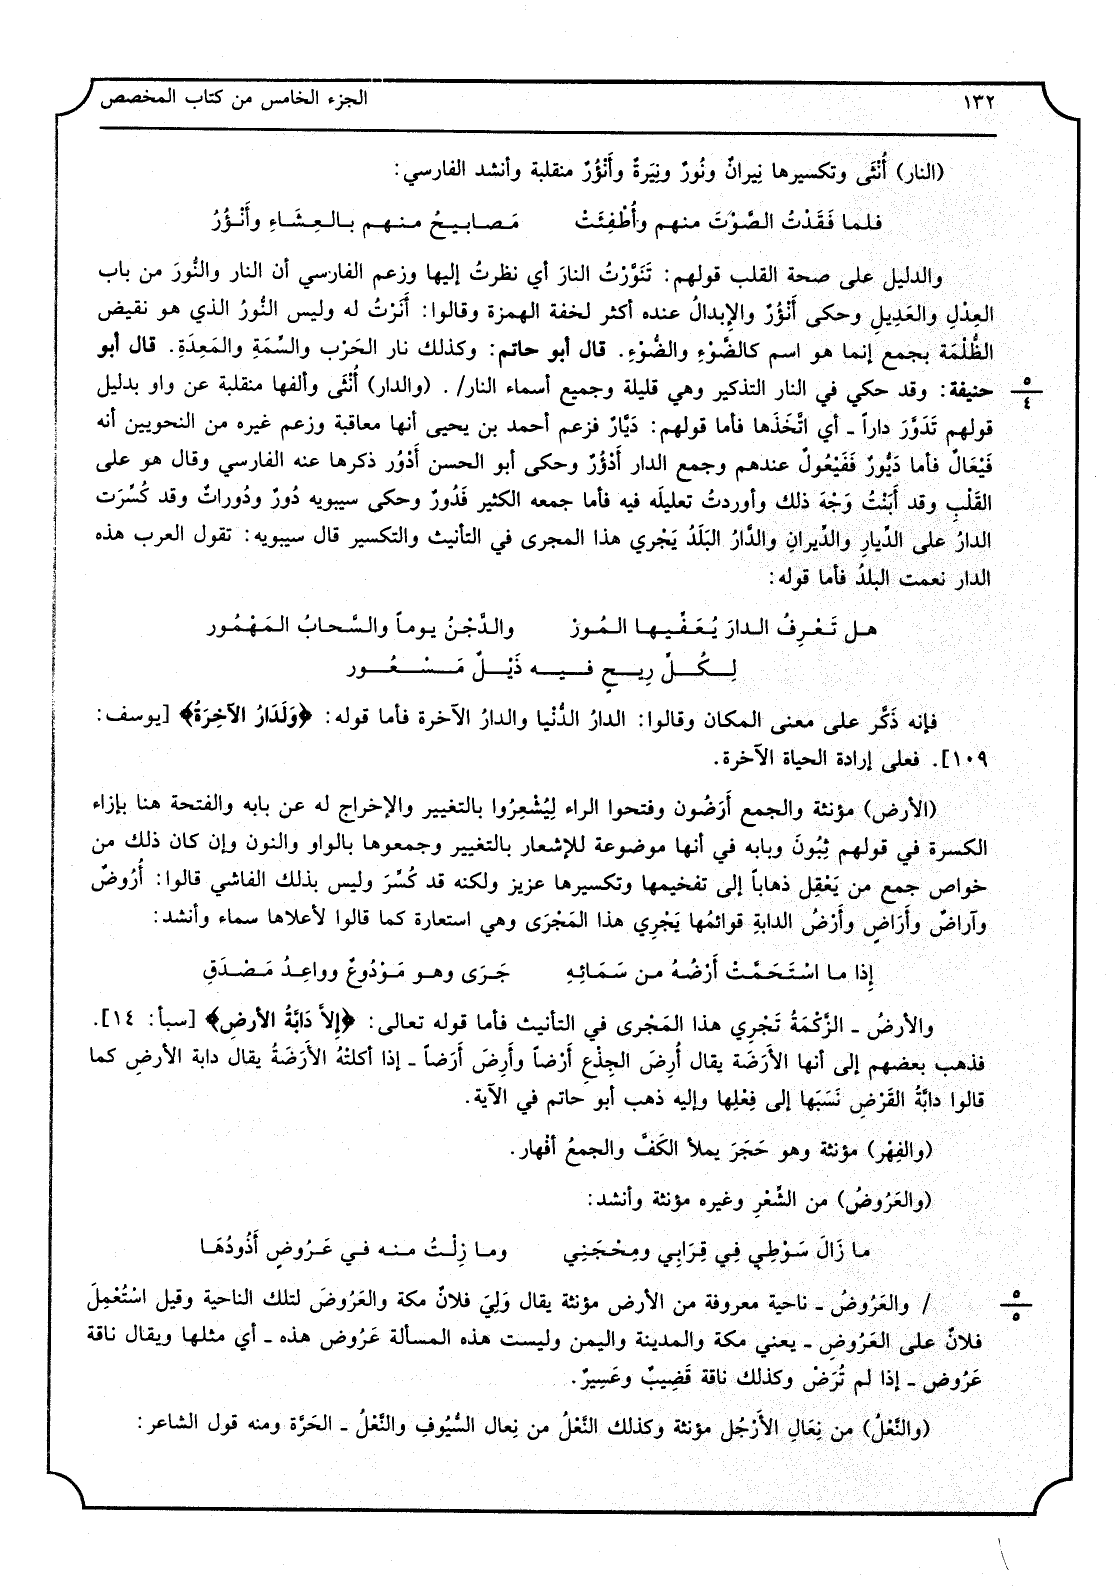 ١٣٢ الجزء الخامس من كتاب المخصص
(النار) أُنْثَى وتكسيرها نِيرانٌ ونُورٌ ونِيَرةٌ وأَنْؤُرٌ منقلبة وأنشد الفارسي:
فلما فَقَدْتُ الصَّوْتَ منهم وأُطْفِئَتْ مَصابيحُ منهم بالعِشَاءِ وأَنْؤُرُ
والدليل على صحة القلب قولهم: تَنَوَّرْتُ النارَ أي نظرتُ إليها وزعم الفارسي أن النار والنُّورَ من باب
العِدْلِ والعَدِيلِ وحكى أَنْؤُرٌ والإبدالُ عنده أكثر لخفة الهمزة وقالوا: أَنَرْتُ له وليس النُّورُ الذي هو نقيض
الظُّلْمَة بجمع إنما هو اسم كالضَّوْءِ والضُّوْءِ. قال أبو حاتم: وكذلك نار الحَرْب والسِّمَةِ والمَعِدَةِ. قال أبو
حنيفة: وقد حكي في النار التذكير وهي قليلة وجميع أسماء النار/ . (والدار) أُنْثَى وألفها منقلبة عن واو بدليل
٥
٤
قولهم تَدَوَّرَ داراً ـ أي اتَّخَذَها فأما قولهم: دَيَّارٌ فزعم أحمد بن يحيى أنها معاقبة وزعم غيره من النحويين أنه
فَيْعَالٌ فأما دَيُّورٌ فَفَيْعُولٌ عندهم وجمع الدار أَدْؤُرٌ وحكى أبو الحسن أَدْوُر ذكرها عنه الفارسي وقال هو على
القَلْبِ وقد أَبَنْتُ وَجْهَ ذلك وأوردتُ تعليلَه فيه فأما جمعه الكثير فَدُورٌ وحكى سيبويه دُورٌ ودُوراتٌ وقد كُسِّرَت
الدارُ على الدِّيارِ والدِّيرانِ والدَّارُ البَلَدُ يَجْرِي هذا المجرى في التأنيث والتكسير قال سيبويه: تقول العرب هذه
الدار نعمت البلدُ فأما قوله:
هل تَعْرِفُ الدارَ يُعَفِّيها المُورْ والدَّجْنُ يوماً والسَّحابُ المَهْمُور
لِكُلِّ رِيحٍ فيه ذَيْلٌ مَسْعُور
فإنه ذَكَّر على معنى المكان وقالوا: الدارُ الدُّنْيا والدارُ الآخرة فأما قوله: ﴿وَلَدَارُ الآخِرَةُ﴾ [يوسف:
١٠٩]. فعلى إرادة الحياة الآخرة.
(الأرض) مؤنثة والجمع أَرَضُون وفتحوا الراء لِيُشْعِرُوا بالتغيير والإخراج له عن بابه والفتحة هنا بإزاء
الكسرة في قولهم ثِبُونَ وبابه في أنها موضوعة للإشعار بالتغيير وجمعوها بالواو والنون وإن كان ذلك من
خواص جمع من يَعْقِل ذهاباً إلى تفخيمها وتكسيرها عزيز ولكنه قد كُسِّرَ وليس بذلك الفاشي قالوا: أُرُوضٌ
وآراضٌ وأَرَاضٍ وأَرْضُ الدابةِ قوائمُها يَجْرِي هذا المَجْرَى وهي استعارة كما قالوا لأعلاها سماء وأنشد:
إذا ما اسْتَحَمَّتْ أَرْضُهُ من سَمَائِهِ جَرَى وهو مَوْدُوعٌ وواعِدُ مَصْدَقِ
والأرضُ ـ الزَّكْمَةُ تَجْرِي هذا المَجْرى في التأنيث فأما قوله تعالى: ﴿إِلاَّ دَابَّةُ الأرضِ﴾ [سبأ: ١٤].
فذهب بعضهم إلى أنها الأَرَضَة يقال أُرِضَ الجِذْعِ أَرْضاً وأَرِضَ أَرَضاً ـ إذا أكلتْهُ الأَرَضَةُ يقال دابة الأرضِ كما
قالوا دابَّةُ القَرْضِ نَسَبَها إلى فِعْلِها وإليه ذهب أبو حاتم في الآية.
(والفِهْر) مؤنثة وهو حَجَرَ يملأ الكَفَّ والجمعُ أفْهار.
(والعَرُوضُ) من الشَّعْرِ وغيره مؤنثة وأنشد:
ما زَالَ سَوْطِي فِي قِرَابِي ومِحْجَنِي وما زِلْتُ منه في عَرُوضٍ أَذُودُهَا
/ والعَرُوضُ ـ ناحية معروفة من الأرض مؤنثة يقال وَلِيَ فلانٌ مكة والعَرُوضَ لتلك الناحية وقيل اسْتُعْمِلَ
٥
٥
فلانٌ على العَرُوضِ ـ يعني مكة والمدينة واليمن وليست هذه المسألة عَرُوض هذه ـ أي مثلها ويقال ناقة
عَرُوض ـ إذا لم تُرَضْ وكذلك ناقة قَضِيبٌ وعَسِيرٌ.
(والنَّعْلُ) من نِعَالِ الأَرْجُل مؤنثة وكذلك النَّعْلُ من نِعال السُّيُوفِ والنَّعْلُ ـ الحَرَّة ومنه قول الشاعر: